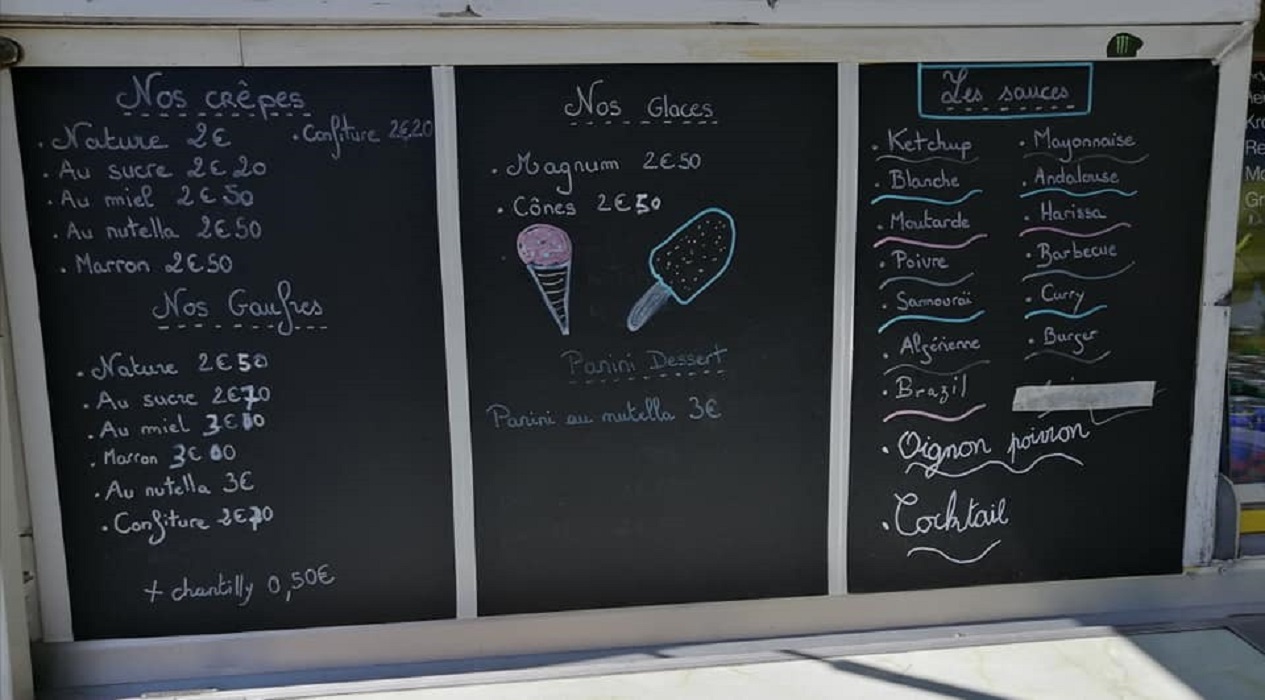 Nos crêpes
. Nature 2€
. Confiture 2€,20
. Au sucre 2€20
. Au miel 2€50
. Au nutella 2€50
. Marron 2€50
Nos Gaufres
. Nature 2€50
. Au sucre 2€70
. Au miel 3€00
. Marron 3€00
. Au nutella 3€
. Confiture 2€70
+ chantilly 0,50€
Nos Glaces
. Magnum 2€50
. Cônes 2€50
Panini Dessert
Panini au nutella 3€
Les sauces
. Ketchup
. Blanche
. Moutarde
. Poivre
. Samouraï
. Algérienne
. Brazil
. Mayonnaise
. Andalouse
. Harissa
. Barbecue
. Curry
. Burger
. Oignon poivron
. Cocktail